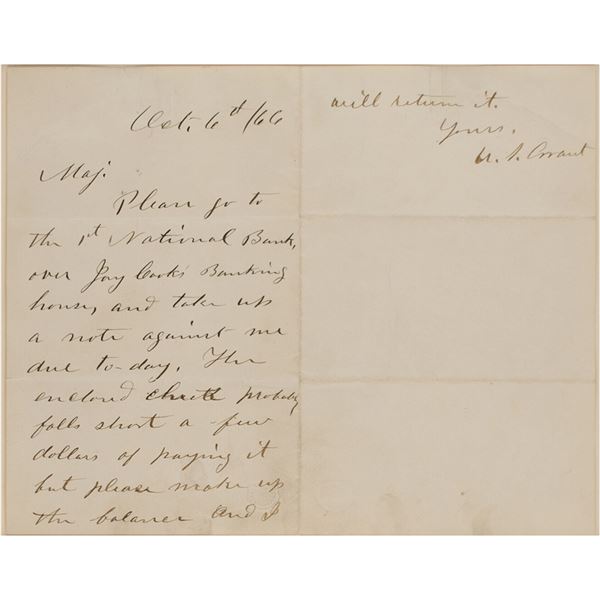 Oct. 6th /66
Maj.
Please go to
the 1st National Bank,
over Jay Cook's Banking
house, and take up
a note against me
due to-day. The
enclosed check probably
falls short a few
dollars of paying it
but please make up
the balance and I
will return it.
Yours,
U. S. Grant